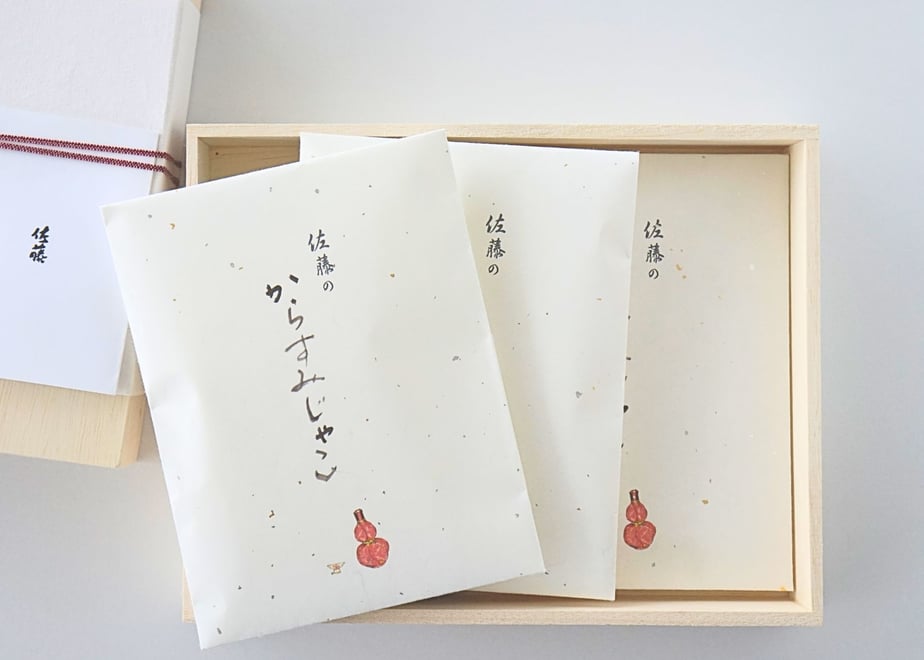 佐藤の
からすみじゃこ
佐藤の
佐藤の
佐藤